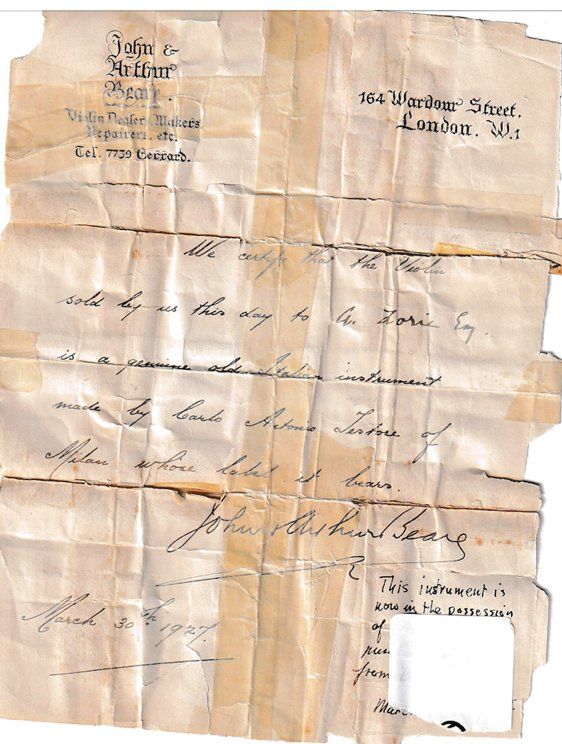 John &
Arthur
Beare.
Violin Dealers Makers
Repairers, etc.
Tel. 7739 Gerrard.
164 Wardour Street,
London, W.1
We certify that the Violin
sold by us this day to A. Esq
is a genuine old Italian instrument
made by Carlo Antonio Testore of
Milan whose label it bears.
John & Arthur Beare
March 30th 1927.
This instrument is
now in the possession
of
from